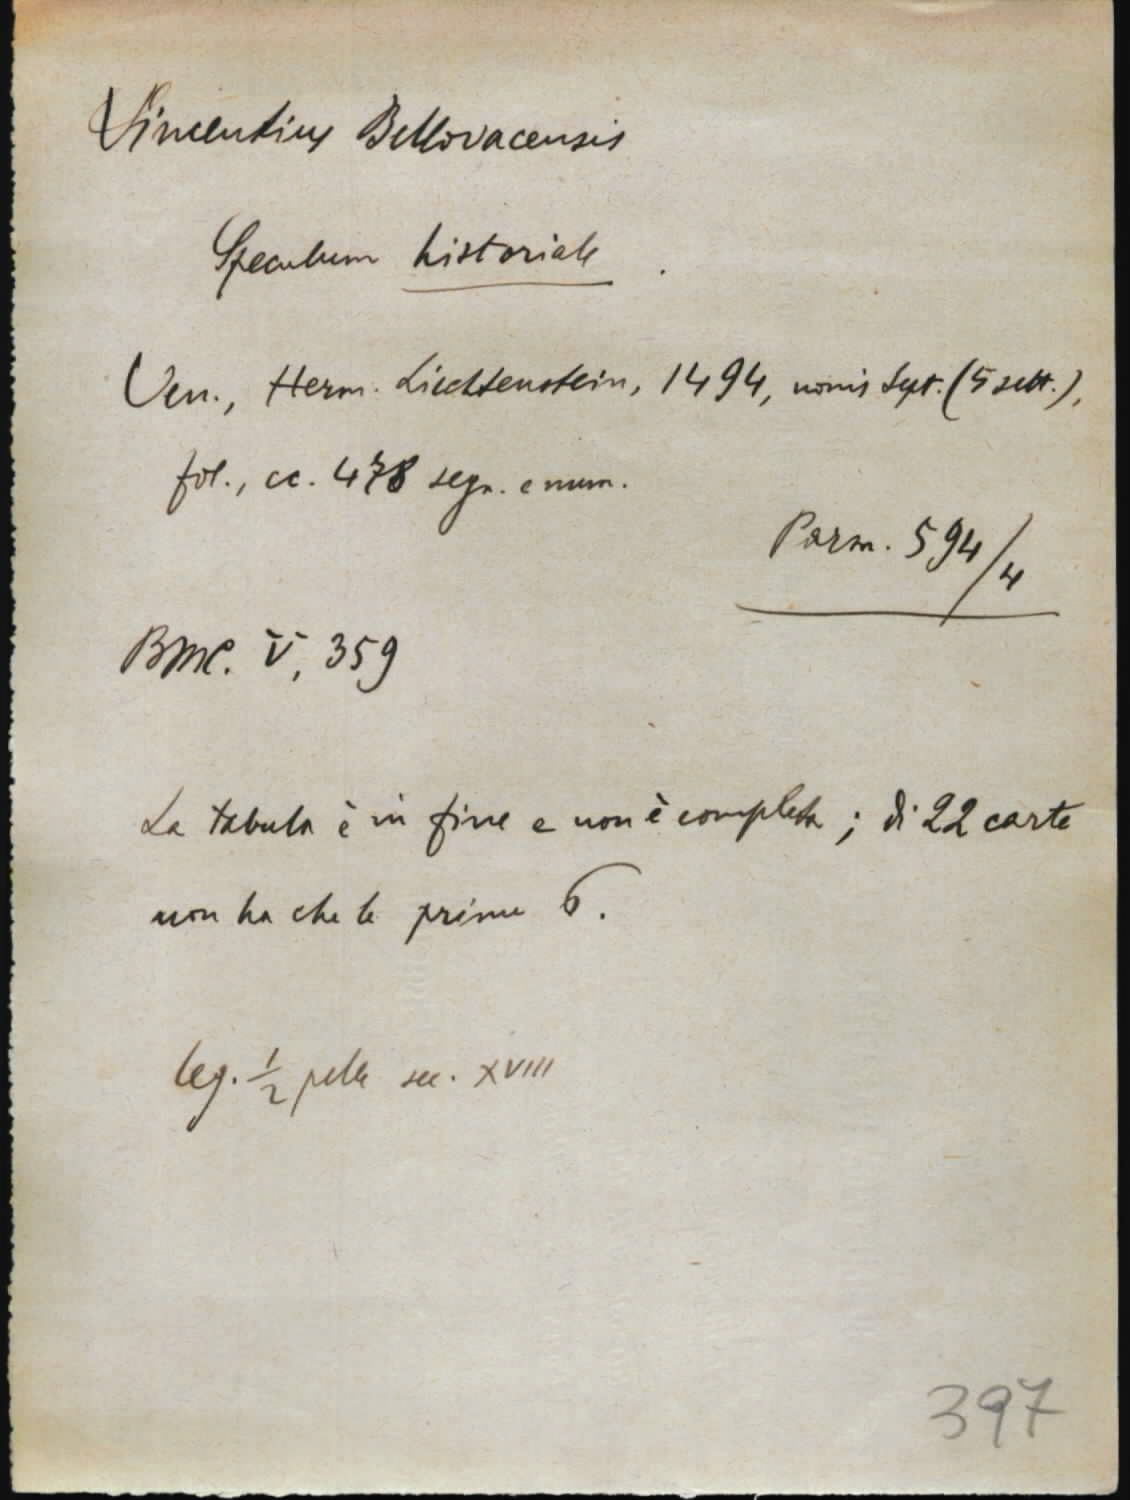 Vincentius Bellovacensis
Speculum historiale .
Ven., Herm. Liechtenstein, 1494, nonis Sept. (5 sett.),
fol., cc. 478 segn. e num.
Parm. 594/4
BMC. V, 359
La tabula è in fine e non è completa ; di 22 carte
non ha che le prime 6.
leg. ½ pelle sec. XVIII
397